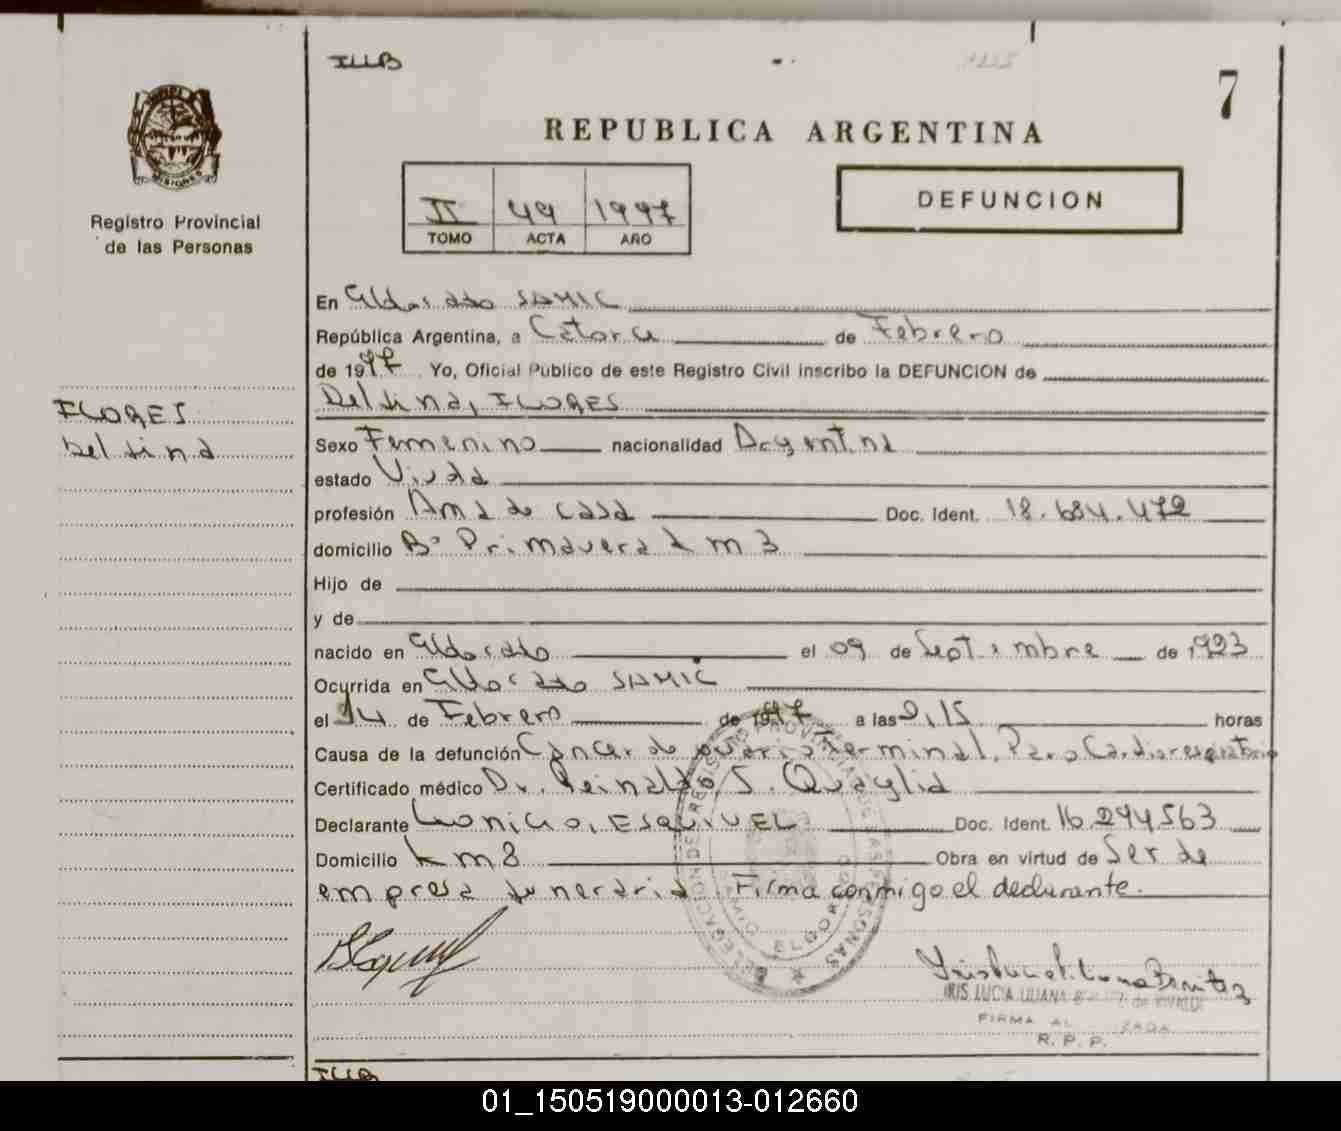 ILLB
7
REPUBLICA ARGENTINA
MISIONES
Registro Provincial
de las Personas
II 49 1997
TOMO ACTA AÑO
DEFUNCION
En Eldorado SAMIC
República Argentina, a Catorce de Febrero
de 1997 Yo, Oficial Publico de este Registro Civil inscribo la DEFUNCION de
Delfina, FLORES
FLORES
Delfina
Sexo Femenino nacionalidad Argentina
estado Viuda
profesión Ama de casa Doc. Ident. 18.684.472
domicilio Bº Primavera km 3
Hijo de
y de
nacido en Eldorado el 09 de Septiembre de 1923
Ocurrida en Eldorado SAMIC
el 14 de Febrero de 1997 a las 2,15 horas
Causa de la defunción Cáncer de ovario terminal. Paro Cardiorespiratorio
Certificado médico Dr. Reinaldo S. Quaglia
Declarante Leonicio, ESQUIVEL Doc. Ident. 16.294.563
Domicilio km 8 Obra en virtud de Ser de
empresa funeraria. Firma conmigo el declarante.
DELEGACION DE REGISTRO PROVINCIAL DE LAS PERSONAS
ELDORADO
IRIS LUCIA LILIANA
FIRMA
R. P. P.
ILLB
01_150519000013-012660